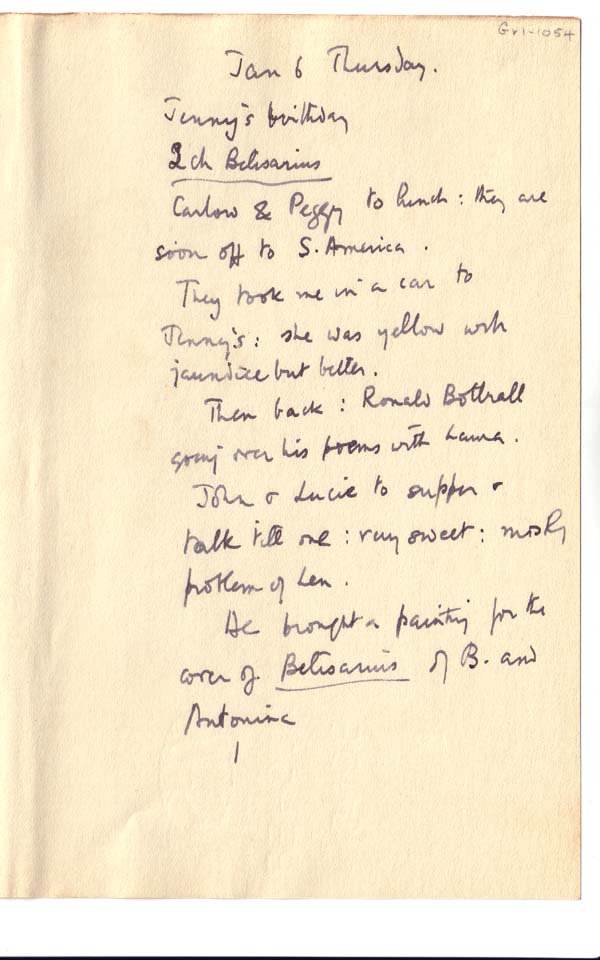 Gv1-1054
Jan 6 Thursday.
Jenny's birthday
2 ch Belisarius
Carlow & Peggy to lunch: they are
soon off to S. America.
They took me in a car to
Jenny's: she was yellow with
jaundice but better.
Then back: Ronald Bottrall
going over his poems with Laura.
John & Lucie to supper &
talk till one: very sweet: mostly
problem of Len.
He brought a painting for the
cover of Belisarius of B. and
Antonina
1